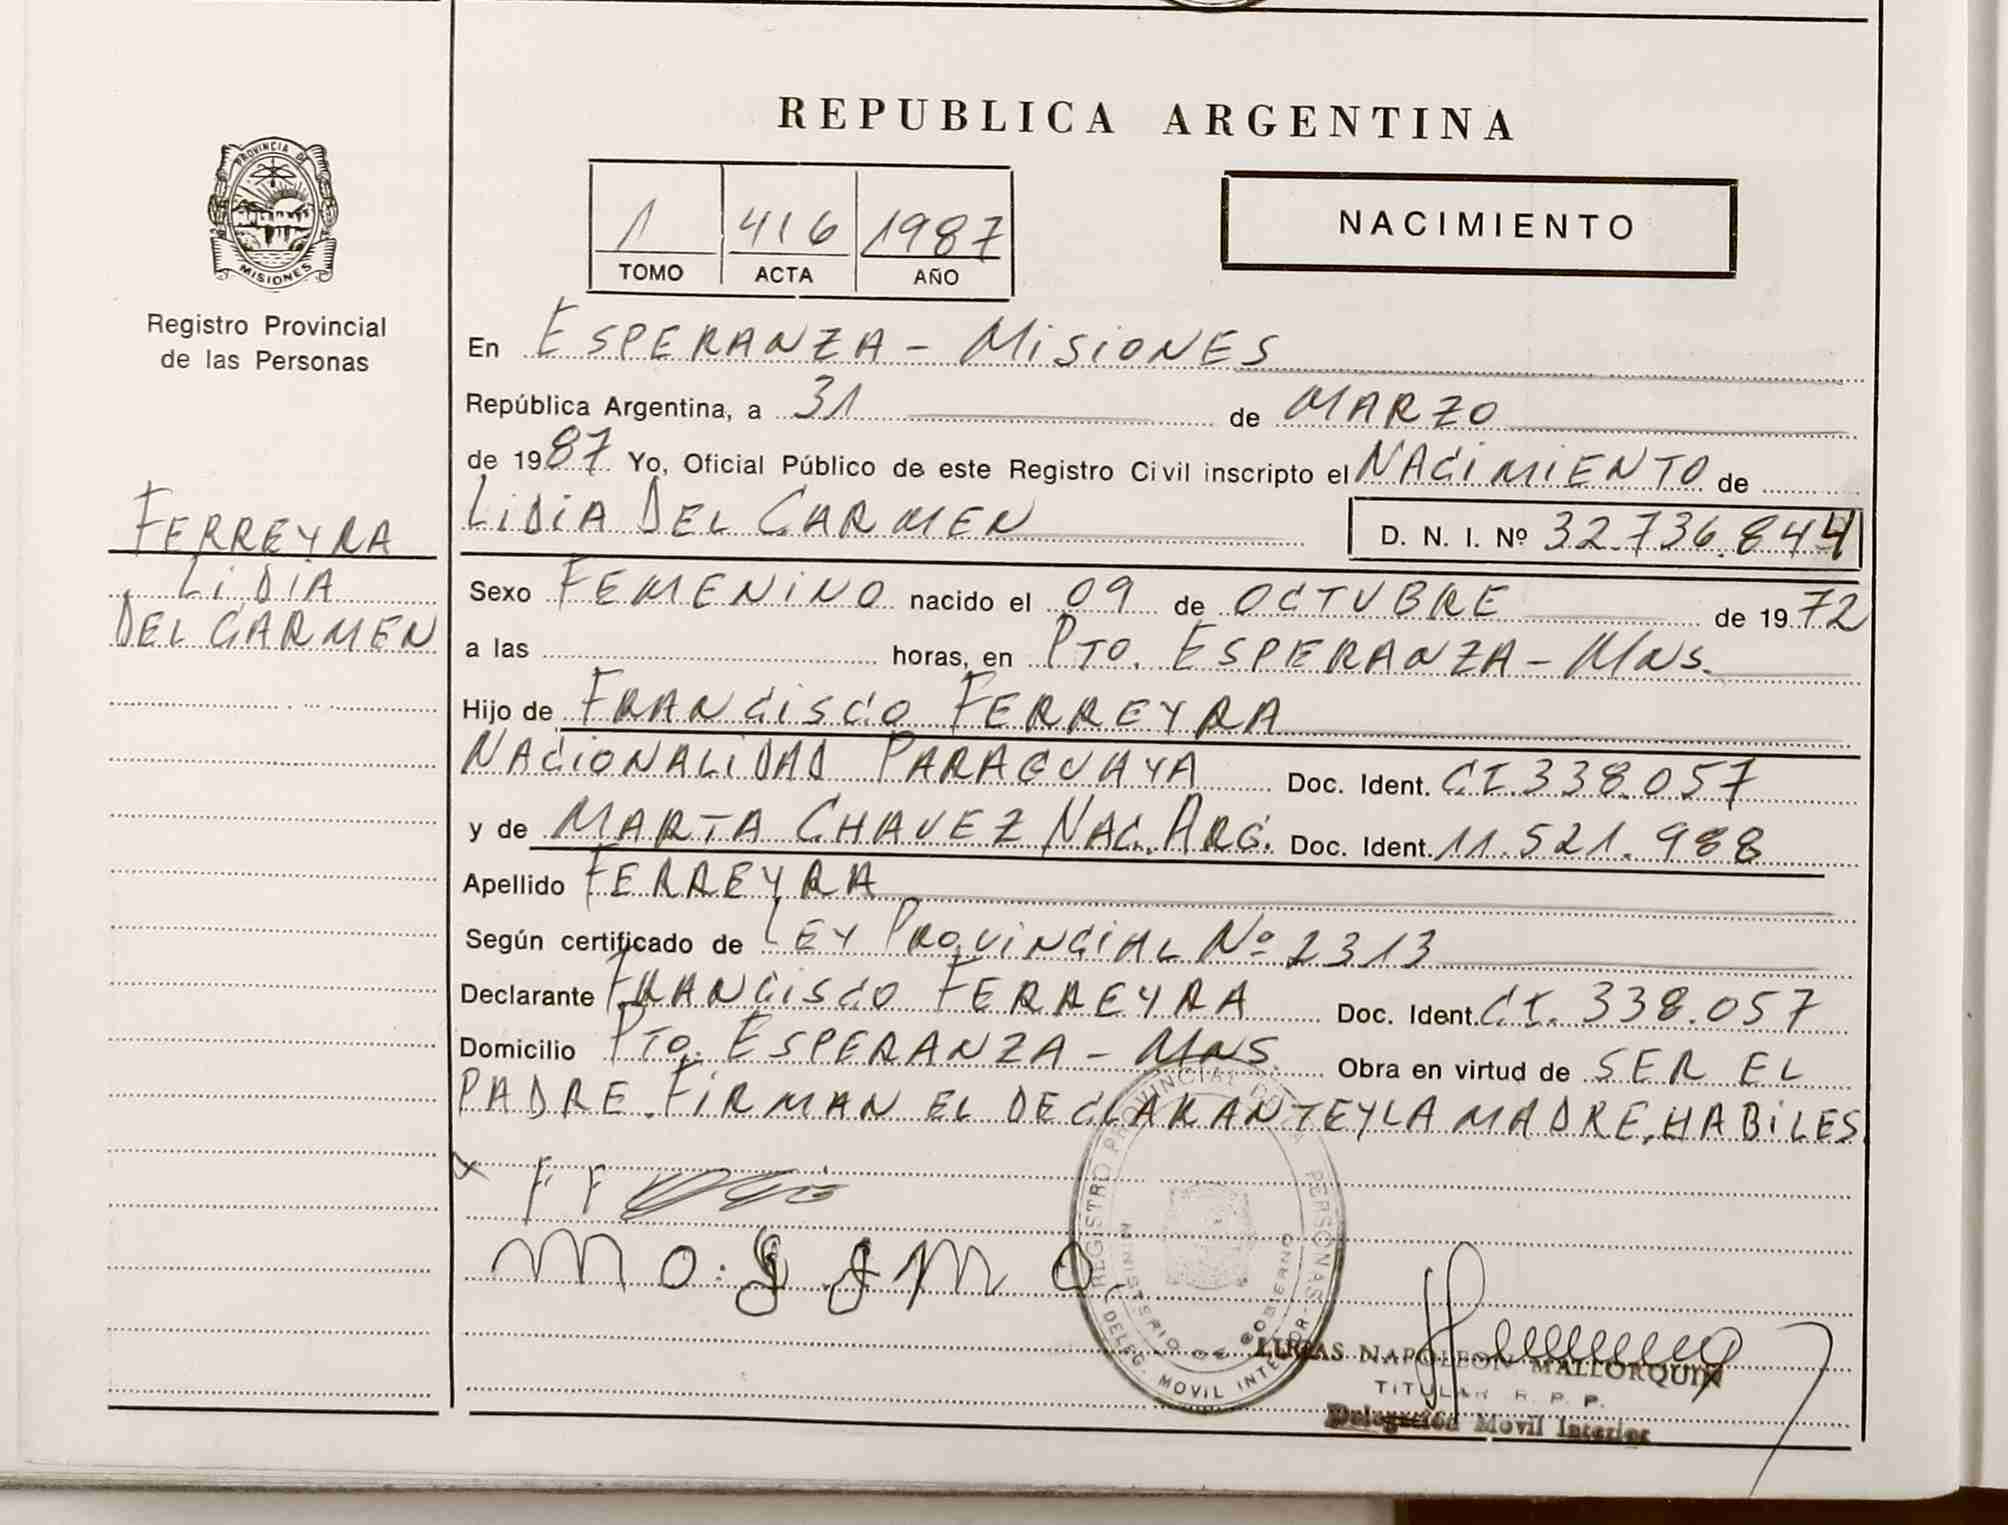 REPUBLICA ARGENTINA
PROVINCIA DE
MISIONES
Registro Provincial
de las Personas
1 416 1987
TOMO ACTA AÑO
NACIMIENTO
En ESPERANZA - MISIONES
República Argentina, a 31 de MARZO
de 1987 Yo, Oficial Público de este Registro Civil inscripto el NACIMIENTO de
LIDIA DEL CARMEN D. N. I. Nº 32.736.844
FERREYRA
LIDIA
DEL CARMEN
Sexo FEMENINO nacido el 09 de OCTUBRE de 1972
a las horas, en PTO. ESPERANZA - MNS.
Hijo de FRANCISCO FERREYRA
NACIONALIDAD PARAGUAYA Doc. Ident. CI. 338.057
y de MARTA CHAVEZ NAC. ARG. Doc. Ident. 11.521.988
Apellido FERREYRA
Según certificado de LEY PROVINCIAL Nº 2313
Declarante FRANCISCO FERREYRA Doc. Ident. CI. 338.057
Domicilio PTO. ESPERANZA - MNS. Obra en virtud de SER EL
PADRE. FIRMAN EL DECLARANTE Y LA MADRE, HABILES.
REGISTRO PROVINCIAL DE PERSONAS
MINISTERIO DE GOBIERNO
DELEG. MOVIL INTERIOR
LUCAS NAPOLEON MALLORQUIN
TITULAR R. P. P.
Delegación Movil Interior